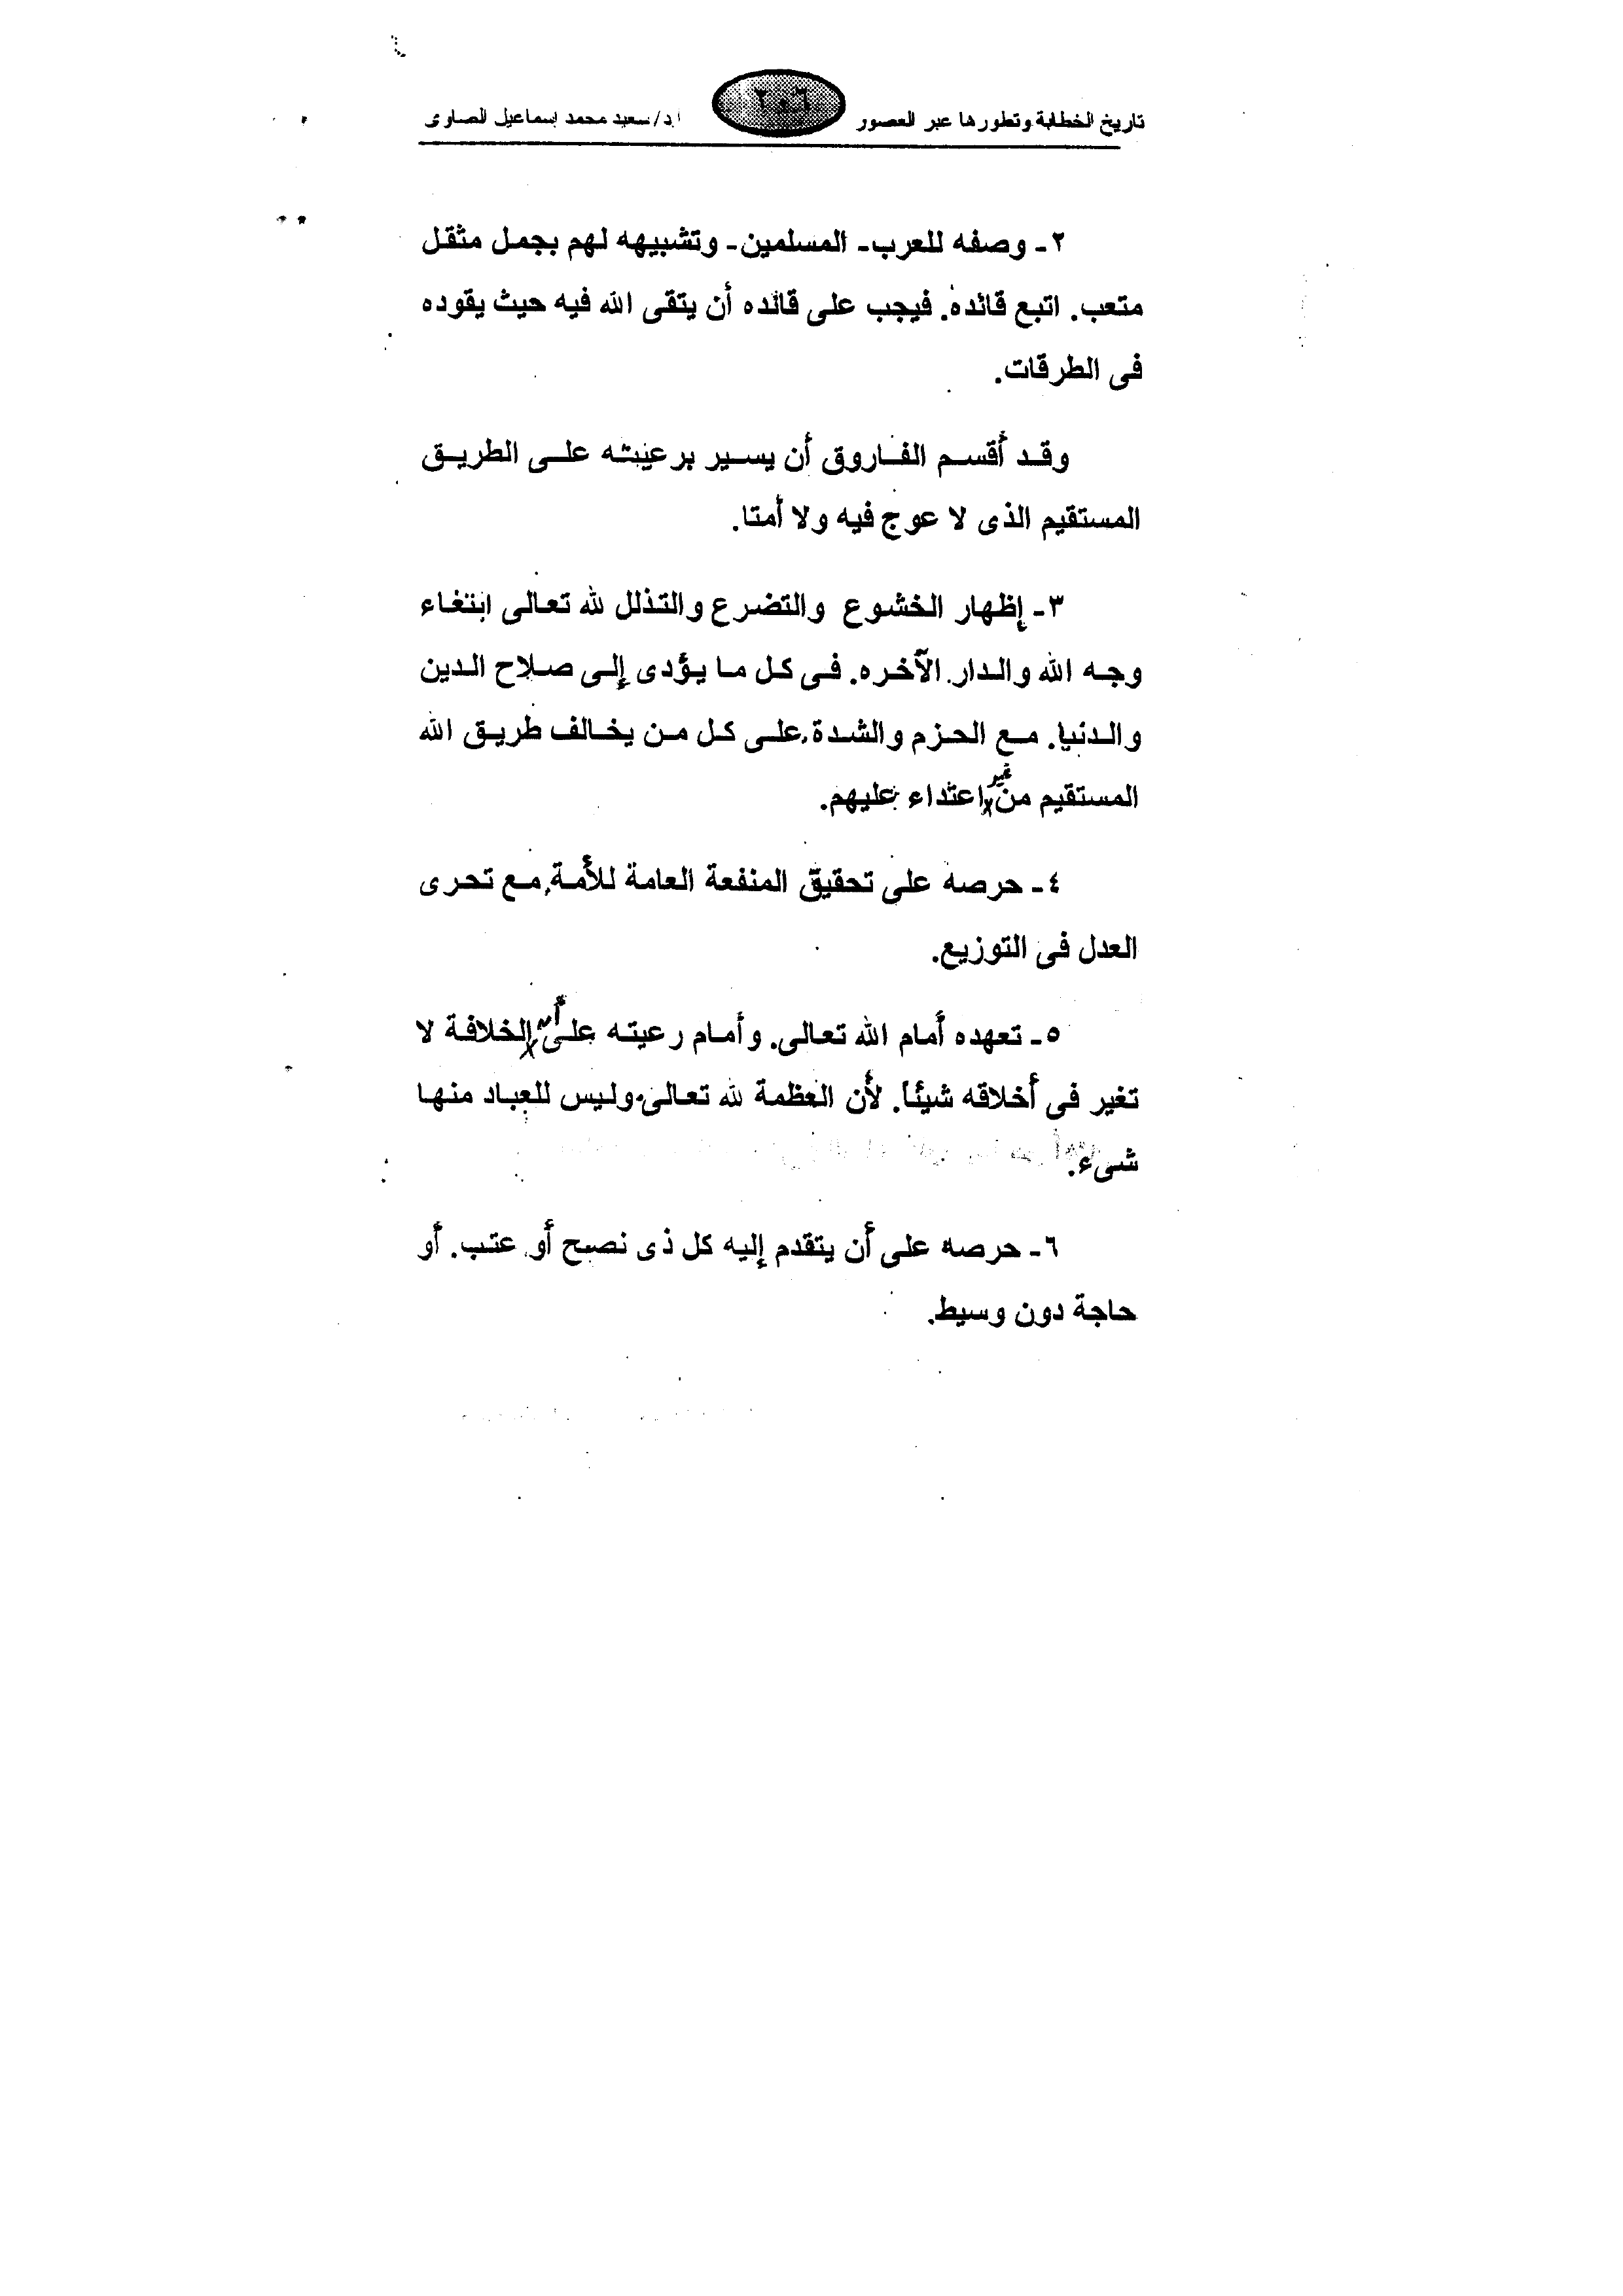 تاريخ الخطابة وتطورها عبر العصور
ا.د/سعيد محمد إسماعيل الصاوى
٢- وصفه للعرب- المسلمين- وتشبيهه لهم بجمل مثقل
متعب. اتبع قائده. فيجب على قائده أن يتقى الله فيه حيث يقوده
فى الطرقات.
وقد أقسم الفاروق أن يسير برعيته على الطريق
المستقيم الذى لا عوج فيه ولا أمتا.
٣- إظهار الخشوع والتضرع والتذلل لله تعالى ابتغاء
وجه الله والدار الآخره. فى كل ما يؤدى إلى صلاح الدين
والدنيا. مع الحزم والشدة. على كل من يخالف طريق الله
المستقيم من غير اعتداء عليهم.
٤- حرصه على تحقيق المنفعة العامة للأمة, مع تحرى
العدل فى التوزيع.
٥- تعهده أمام الله تعالى. وأمام رعيته على أن الخلافة لا
تغير فى أخلاقه شيئا. لأن العظمة لله تعالى. وليس للعباد منها
شىء.
٦- حرصه على أن يتقدم إليه كل ذى نصح أو عتب. أو
حاجة دون وسيط.